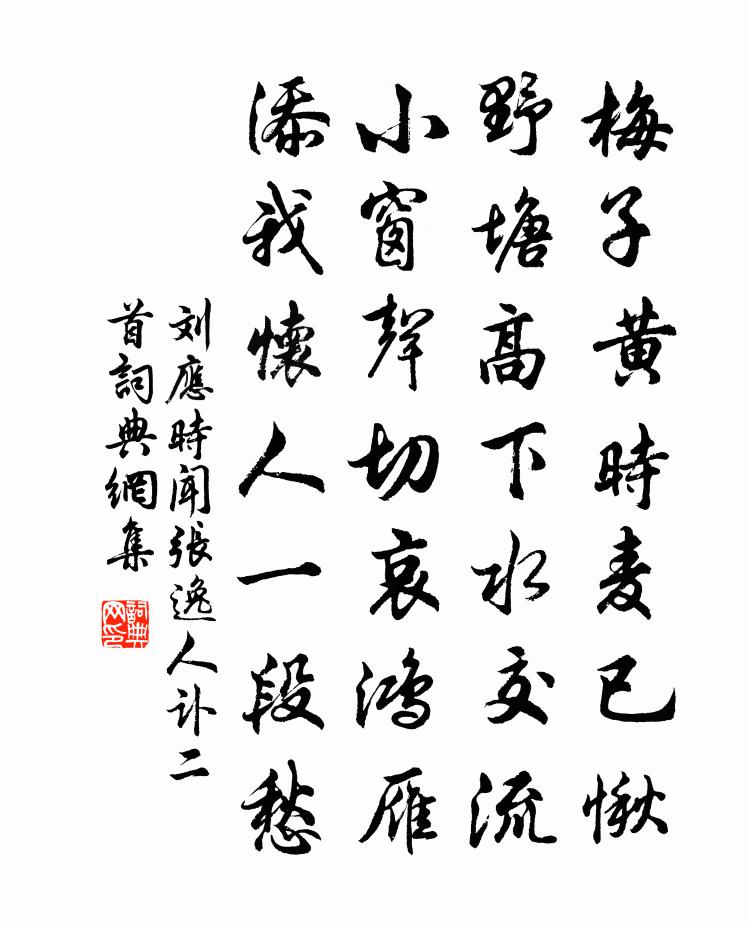 梅子黄時麦已愀
野塘高下水交流
小窗聲切哀鸿雁
添我懷人一段愁
刘應時闻張逸人讣二
首詞典網集
詞典网印